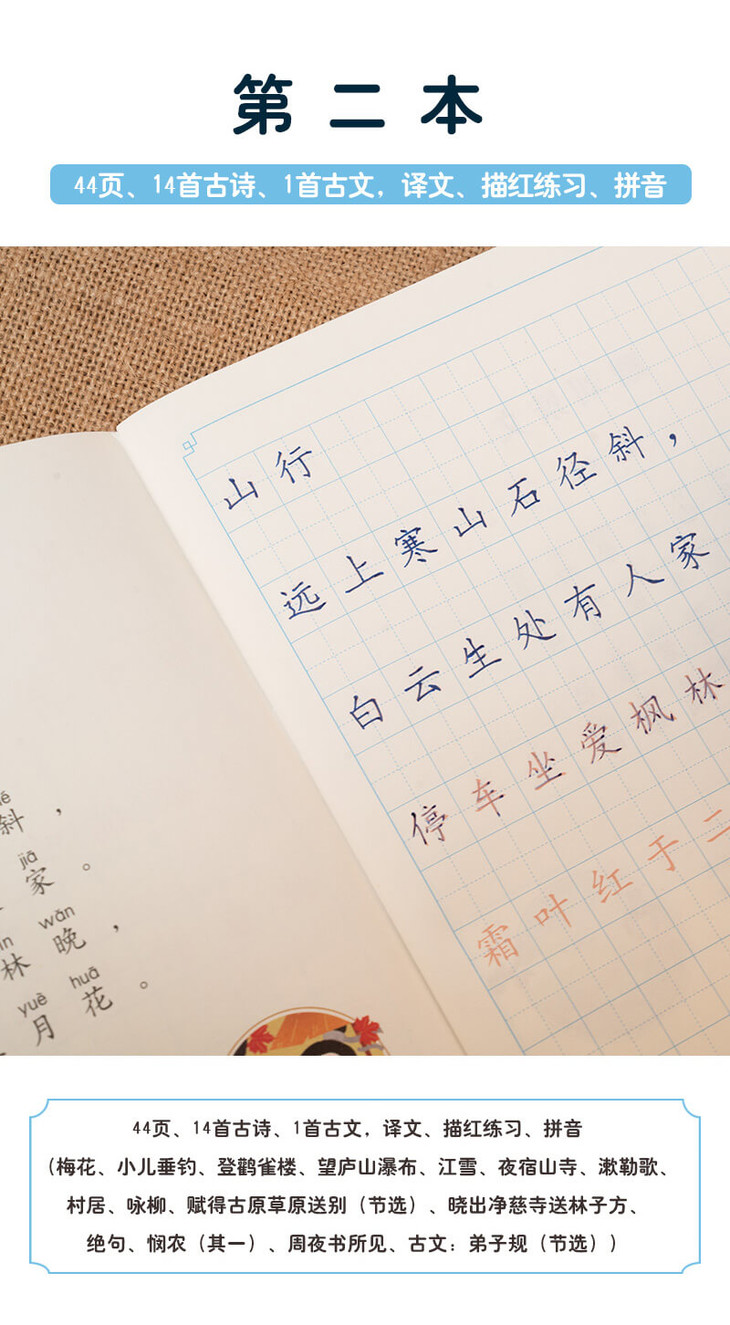 第二本
44页、14首古诗、1首古文，译文、描红练习、拼音
山行
远上寒山石径斜，
白云生处有人家
停车坐爱枫林
霜叶红于二
斜，
jiā
家。
wǎn
林晚，
yuè huā
月花。
44页、14首古诗、1首古文，译文、描红练习、拼音
（梅花、小儿垂钓、登鹳雀楼、望庐山瀑布、江雪、夜宿山寺、漱勒歌、
村居、咏柳、赋得古原草原送别（节选）、晓出净慈寺送林子方、
绝句、悯农（其一）、周夜书所见、古文：弟子规（节选））